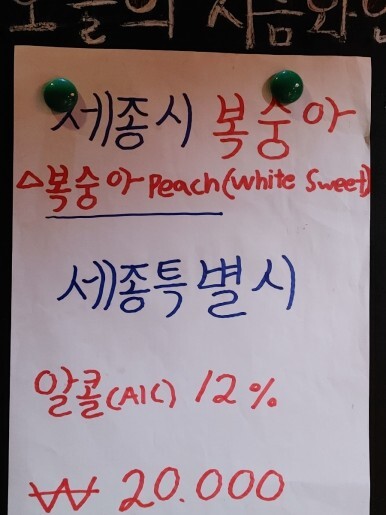 오늘의 지금와인
세종시 복숭아
△복숭아 Peach(White Sweet)
세종특별시
알콜(Alc) 12%
₩ 20.000